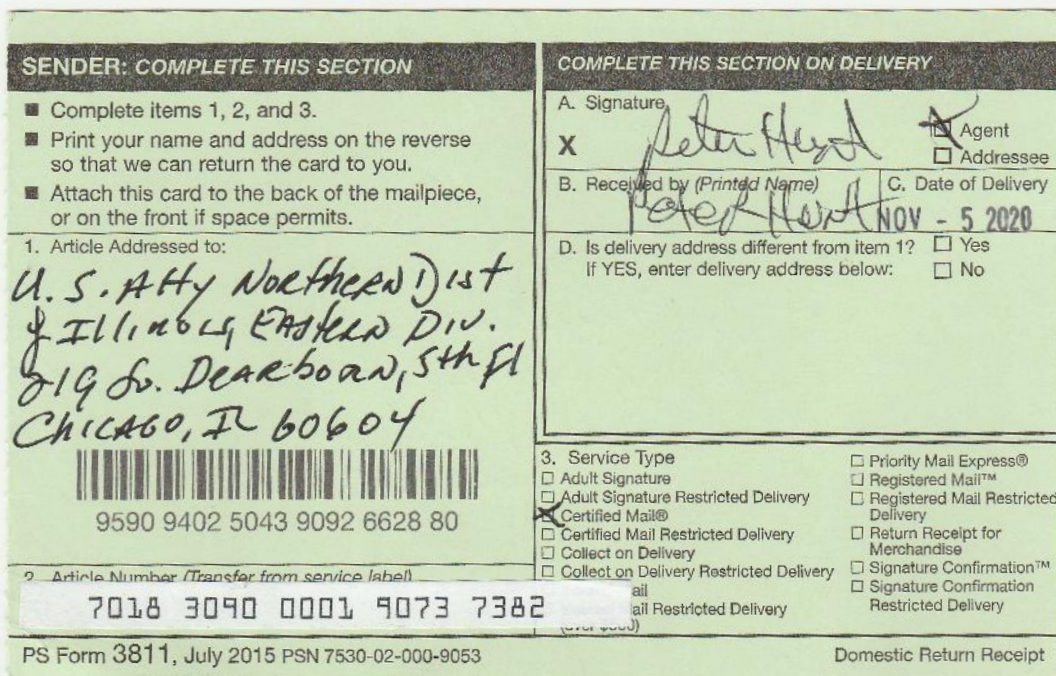 SENDER: COMPLETE THIS SECTION
■ Complete items 1, 2, and 3.
■ Print your name and address on the reverse
so that we can return the card to you.
■ Attach this card to the back of the mailpiece,
or on the front if space permits.
1. Article Addressed to:
U.S. Atty Northern Dist
of Illinois, Eastern Div.
219 So. Dearborn, 5th Fl
Chicago, IL 60604
9590 9402 5043 9092 6628 80
2. Article Number (Transfer from service label)
7018 3090 0001 9073 7382
COMPLETE THIS SECTION ON DELIVERY
A. Signature
X Peter
☒ Agent
☐ Addressee
B. Received by (Printed Name)
Peter
C. Date of Delivery
NOV - 5 2020
D. Is delivery address different from item 1? ☐ Yes
If YES, enter delivery address below: ☐ No
3. Service Type
☐ Adult Signature
☐ Adult Signature Restricted Delivery
☒ Certified Mail®
☐ Certified Mail Restricted Delivery
☐ Collect on Delivery
☐ Collect on Delivery Restricted Delivery
ail
ail Restricted Delivery
☐ Priority Mail Express®
☐ Registered Mail™
☐ Registered Mail Restricted
Delivery
☐ Return Receipt for
Merchandise
☐ Signature Confirmation™
☐ Signature Confirmation
Restricted Delivery
PS Form 3811, July 2015 PSN 7530-02-000-9053
Domestic Return Receipt